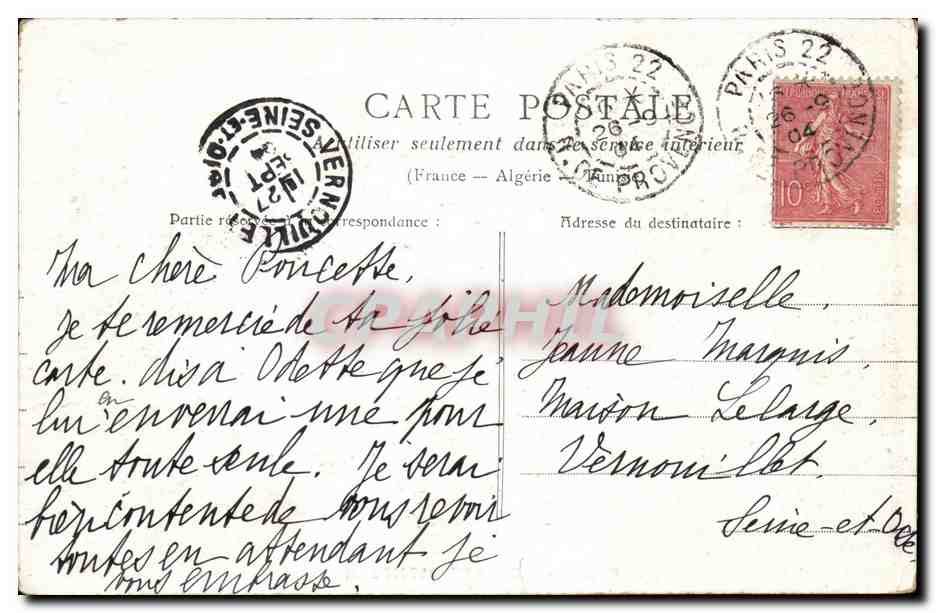 CARTE POSTALE
A utiliser seulement dans le service intérieur
(France — Algérie — Tunisie)
Partie réservée à la correspondance :
Adresse du destinataire :
PARIS 22
R. DE PROVENCE
26 - 9
04
PARIS 22
PROVENCE
26 - 9
04
VERNOUILLET
SEINE-ET-OISE
27
SEPT
10c
Ma chère Poucette,
Je te remercie de ta jolie
carte. dis à Odette que je
lui en enverrai une pour
elle toute seule. Je serai
bien contente de vous revoir
toutes en attendant je
vous embrasse.
Mademoiselle,
Jeanne Marquis,
Maison Lelarge,
Vernouillet.
Seine-et-Oise.
CRAPHIL